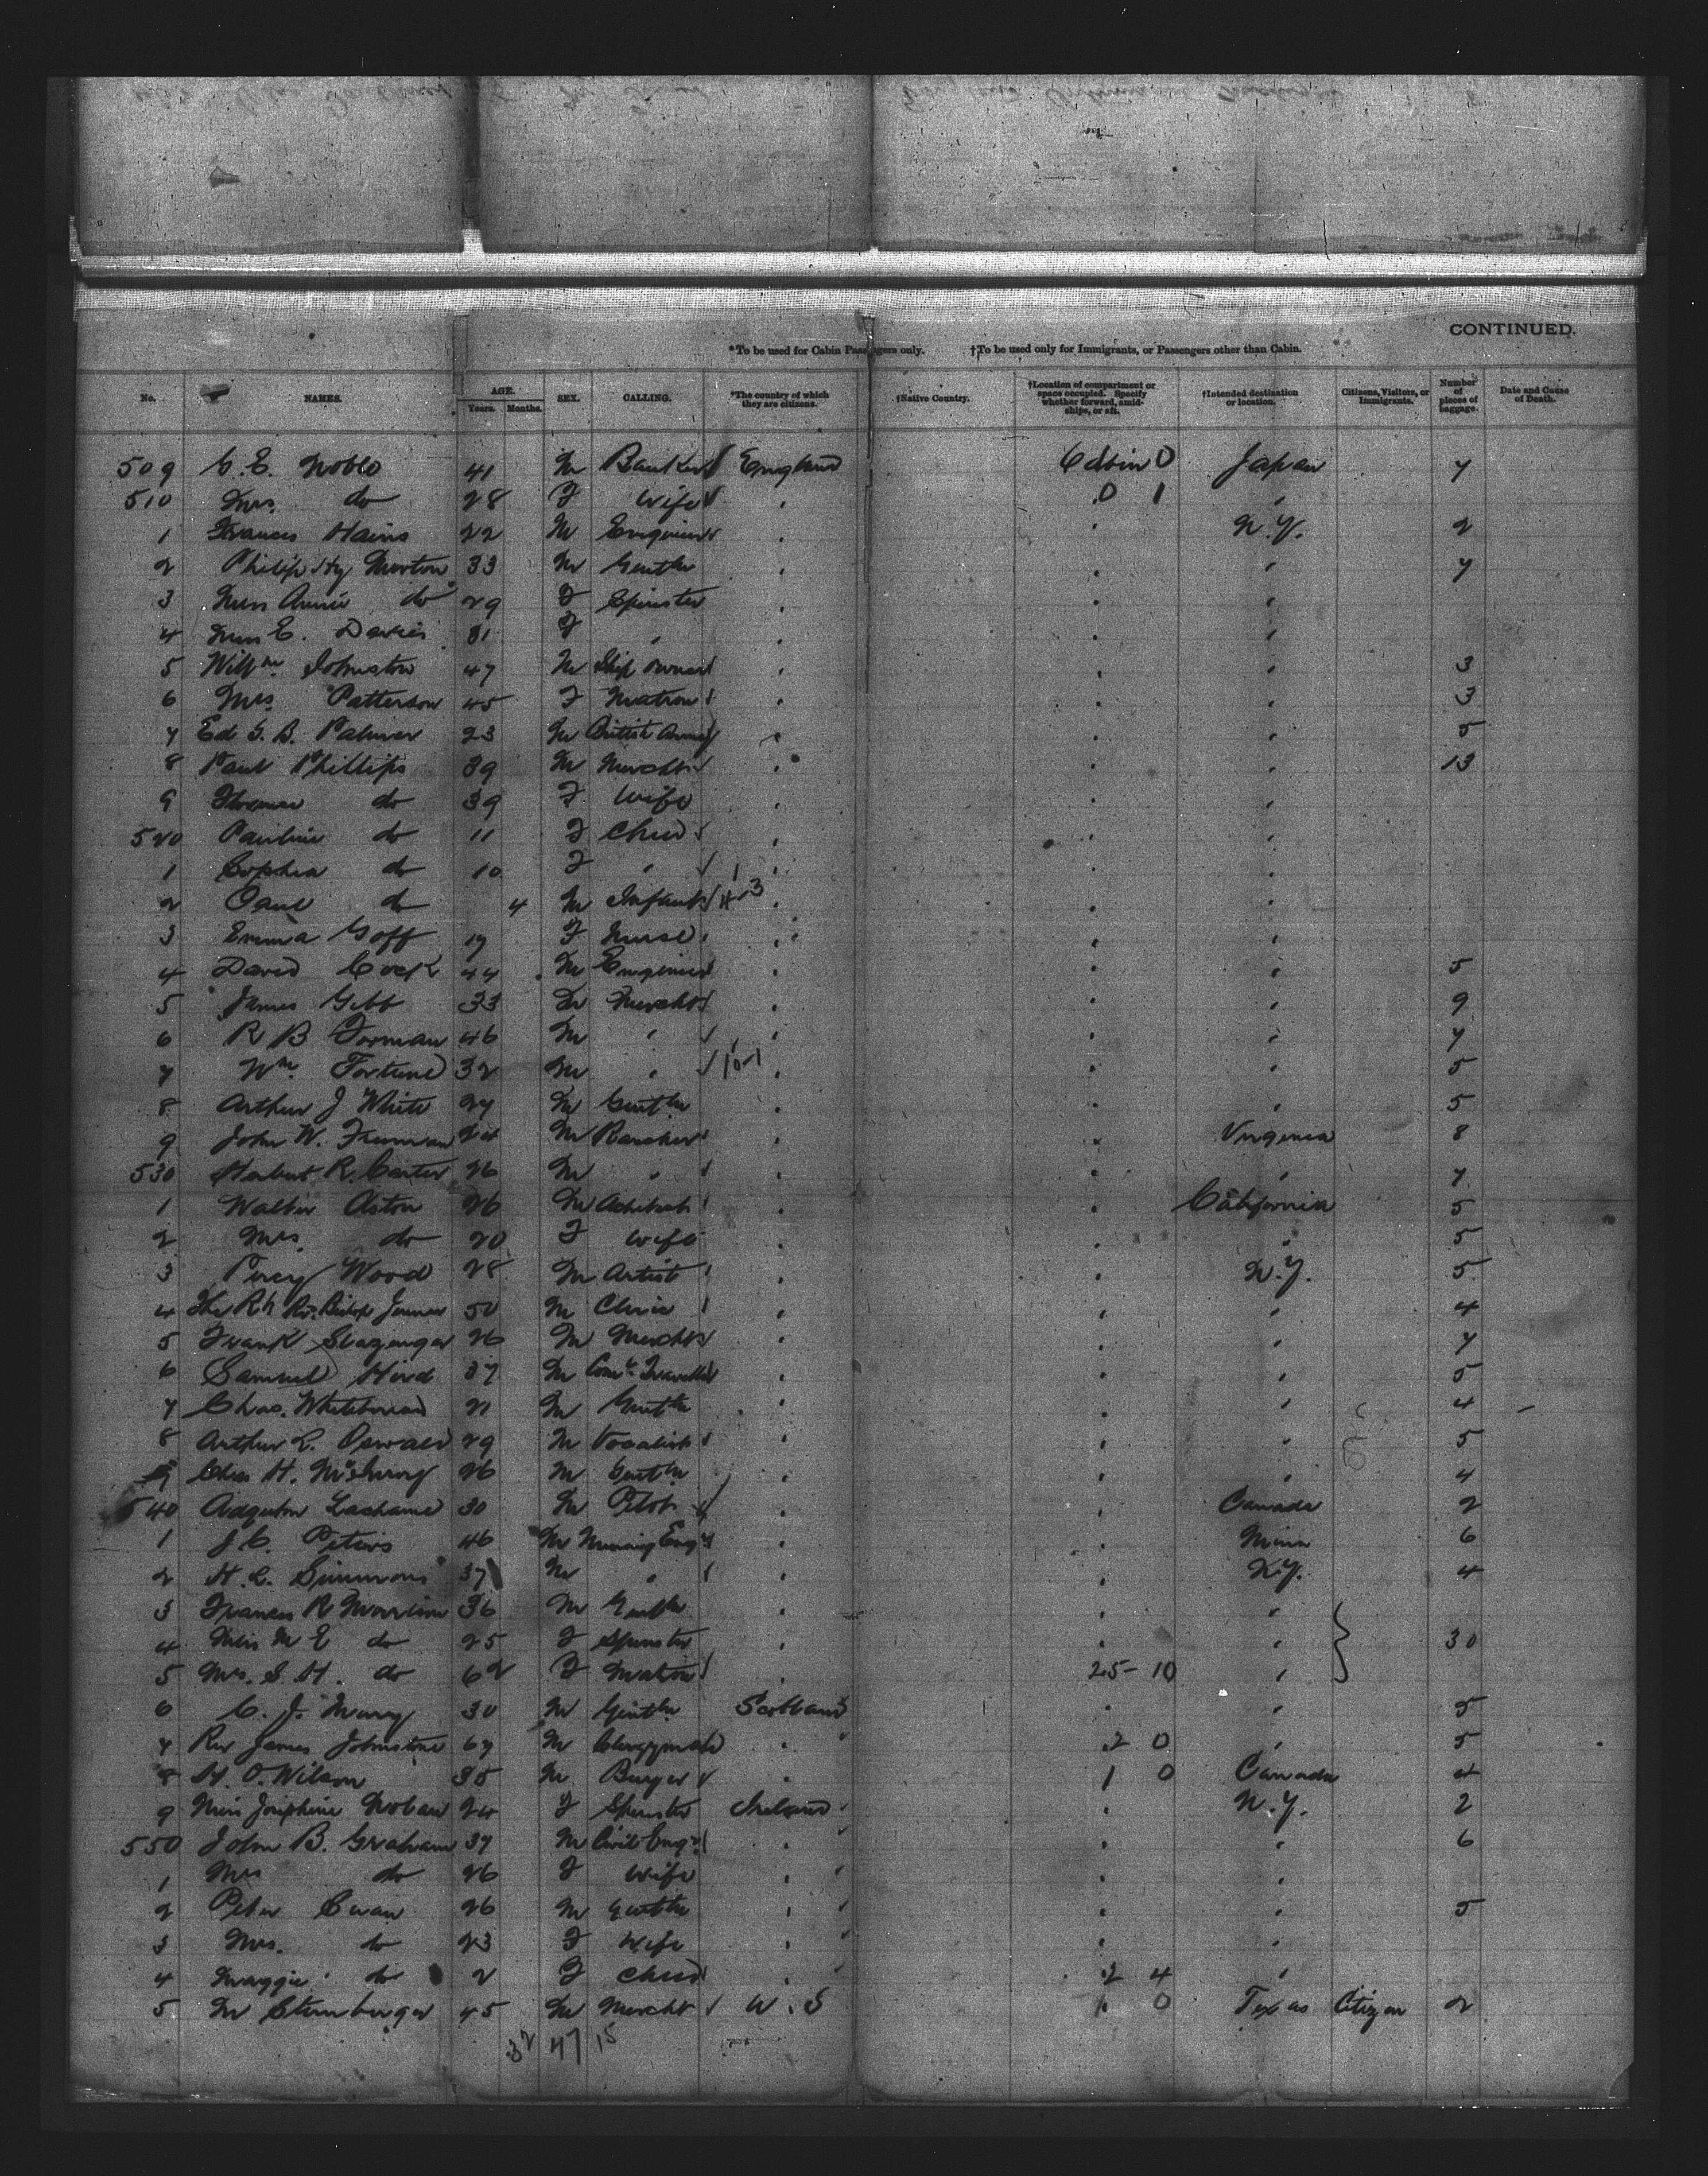 CONTINUED.
*To be used for Cabin Passengers only. †To be used only for Immigrants, or Passengers other than Cabin.
No. NAMES. AGE. Years. Months. SEX. CALLING. *The country of which they are citizens. †Native Country. †Location of compartment or space occupied. Specify whether forward, amidships, or aft. †Intended destination or location. Citizens, Visitors, or Immigrants. Number of pieces of baggage. Date and Cause of Death.
509 C. E. Noble 41 M Banker England Cabin 0 Japan 7
510 Mrs. do 28 F Wife " 0 1 "
1 Frances Hains 22 M Engineer " " N.Y. 2
2 Philip Hy Morton 33 M Gentln " " " 7
3 Miss Annie do 29 F Spinster " " "
4 Miss E. Davies 31 F " " " "
5 Willm Johnston 47 M Ship owner " " " 3
6 Mrs Patterson 45 F Matron " " " 3
7 Ed G. B. Palmer 23 M British Army " " " 5
8 Paul Phillips 39 M Mercht " " " 13
9 do 39 F Wife " " "
520 Pauline do 11 F Child " " "
1 Sophia do 10 F " " " "
2 Paul do 4 M Infant " " "
3 Emma Goff 19 F Nurse " " "
4 David Cock 44 M Engineer " " " 5
5 James Gibb 33 M Mercht " " " 9
6 R B Forman 46 M " " " " 7
7 Wm Fortune 32 M " 10-1 " " " 5
8 Arthur J White 27 M Gentln " " " 5
9 John W. Freeman 24 M Rancher " " Virginia 8
530 Herbert R. Carter 26 M " " " " 7
1 Walter Aston 26 M " " California 5
2 Mrs. do 20 F Wife " " " 5
3 Percy Wood 28 M Artist " " N.Y. 5
4 The Rt Rev. Bishop Jenner 50 M " " " 4
5 Frank Slazenger 26 M Mercht " " " 7
6 Samuel Hird 37 M Coml Traveller " " " 5
7 Chas. Whitebread 21 M Gentln " " " 4
8 Arthur L. Oswald 29 M Vocalist " " " 5
9 Chas H. 26 M Gentln " " " 4
540 Lachance 30 M Pilot " " Canada 2
1 J C. Peters 46 M Mining Engr " " Minn 6
2 H. L. Simmons 37 M " " " N.Y. 4
3 Frances R Morrison 36 M Gentln " " "
4 Miss M E do 25 F Spinster " " " 30
5 Mrs. S. H. do 62 F Matron " 25-10 "
6 C. J. Murray 30 M Gentln Scotland " " 5
7 Rev James Johnstone 67 M Clergyman " 2 0 " 5
8 H. O. Wilson 35 M Buyer " 1 0 Canada 4
9 Miss Josephine Nolan 24 F Spinster Ireland " N.Y. 2
550 John B. Graham 37 M Civil Engr " " " 6
1 Mrs do 26 F Wife " " "
2 Peter Curan 26 M Gentln " " " 5
3 Mrs. do 23 F Wife " " "
4 Maggie do 2 F Child " 2 4 "
5 M Sternberger 45 M Mercht U.S 1 0 Texas Citizen 2
32 47 15